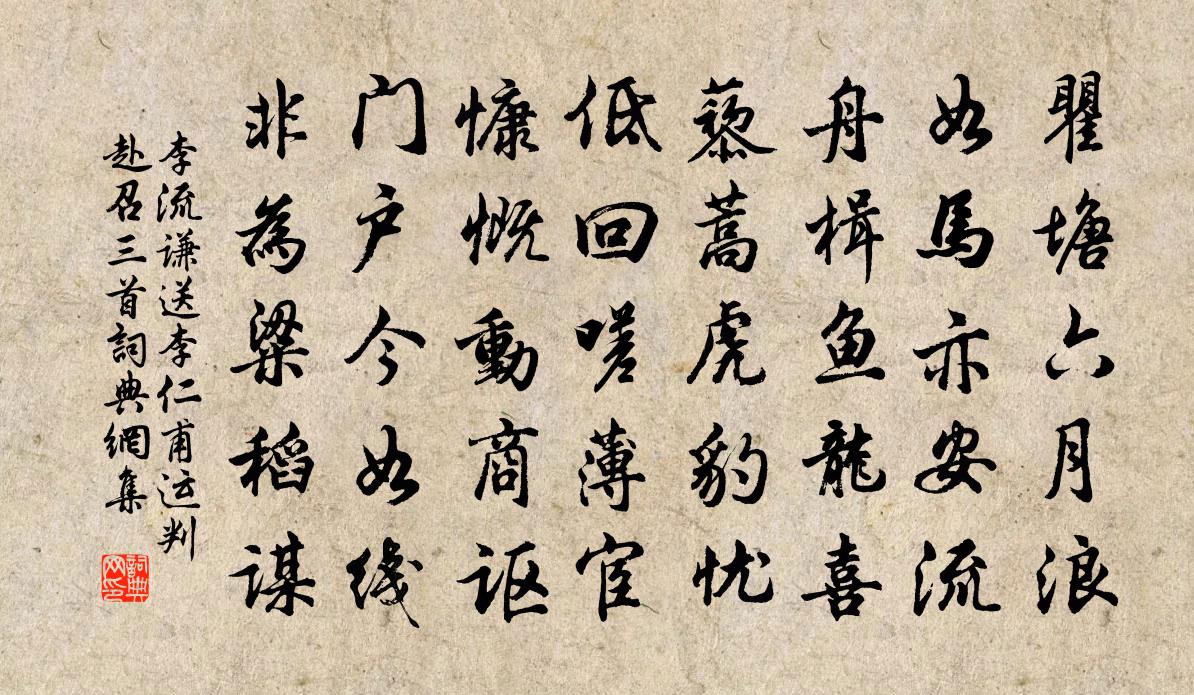 瞿塘六月浪
如馬亦安流
舟楫鱼龍喜
藜蒿虎豹忧
低回嗟薄宦
慷慨動商讴
门户今如线
非為梁稻谋
李流谦送李仁甫运判
赴召三首詞典網集
詞典
网印